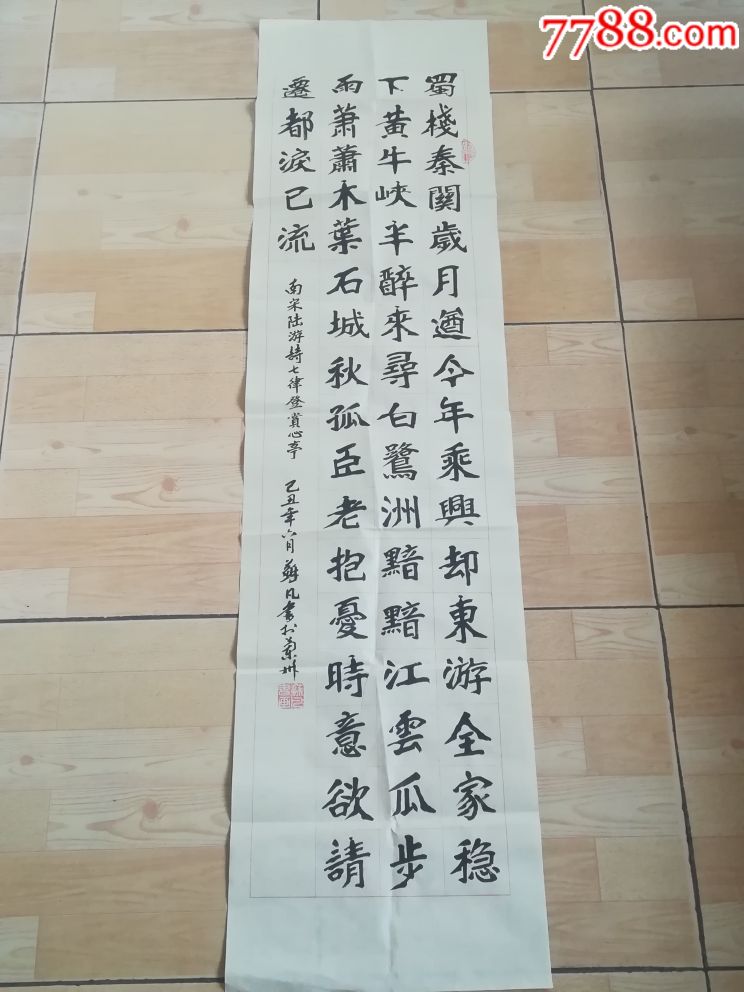 7788.com
蜀棧秦關歲月遒今年乘興却東游全家稳
下黃牛峽半醉來尋白鷺洲黯黯江雲瓜步
雨蕭蕭木葉石城秋孤臣老抱憂時意欲請
遷都淚已流
南宋陆游詩七律登賞心亭 己丑年六月凡書於蘭州